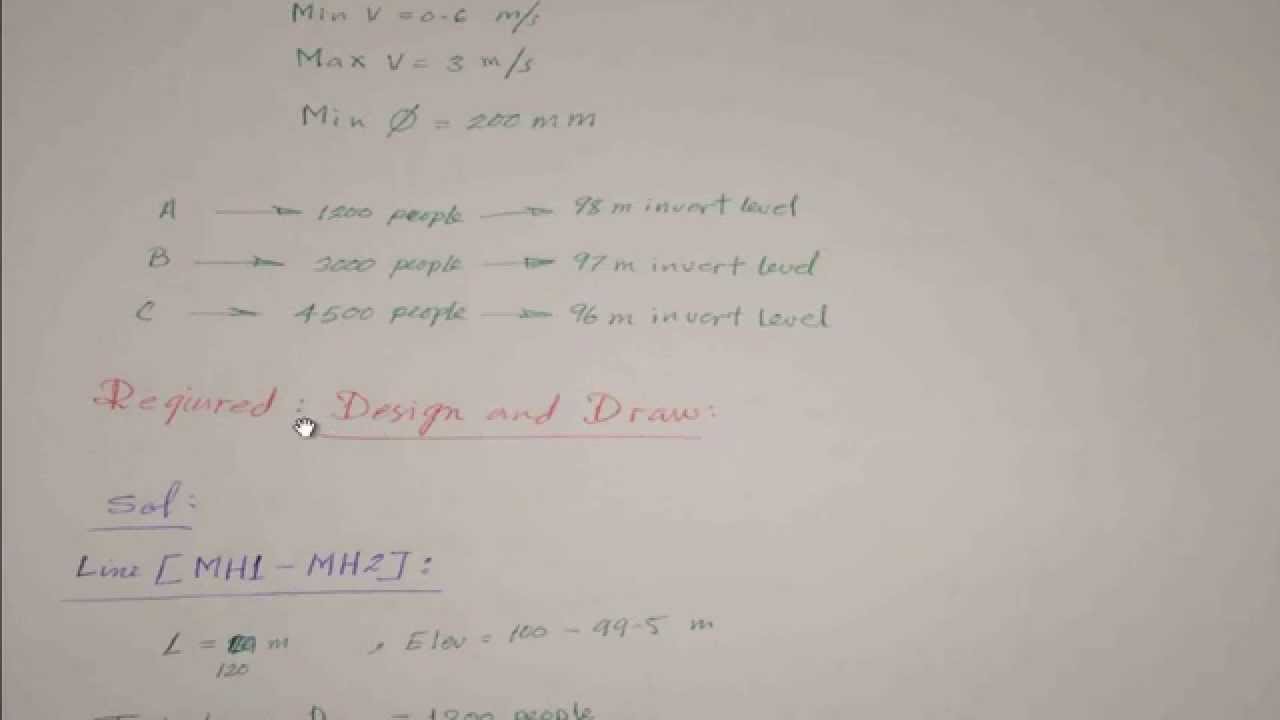 Min V = 0.6 m/s
Max V = 3 m/s
Min Ø = 200 mm
A → 1200 people → 98 m invert level
B → 3000 people → 97 m invert level
C → 4500 people → 96 m invert level
Reqiured : Design and Draw:
Sol:
Line [MH1 - MH2]:
L = m , Elev = 100 - 99.5 m
120
= 1200 people